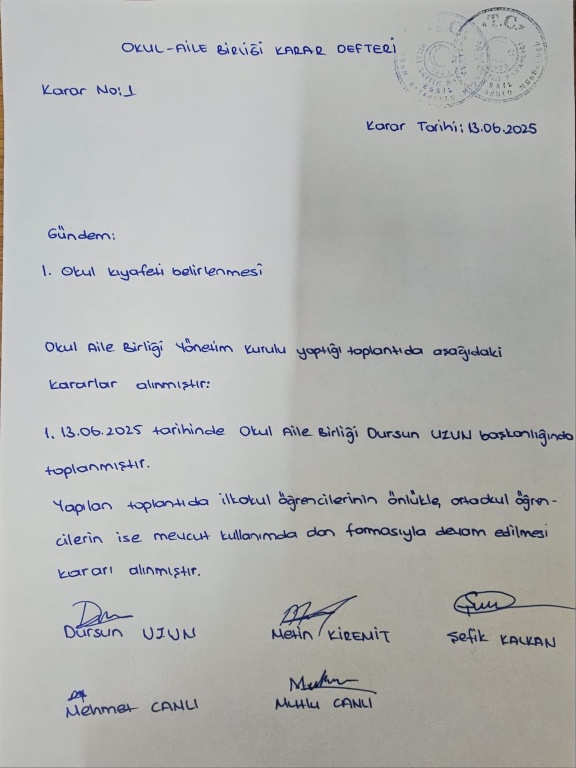 OKUL-AİLE BİRLİĞİ KARAR DEFTERİ
T.C.
Karar No:1
Karar Tarihi: 13.06.2025
Gündem:
1. Okul kıyafeti belirlenmesi
Okul Aile Birliği Yönetim Kurulu yaptığı toplantıda aşağıdaki
kararlar alınmıştır:
1. 13.06.2025 tarihinde Okul Aile Birliği Dursun UZUN başkanlığında
toplanmıştır.
Yapılan toplantıda ilkokul öğrencilerinin önlükle, ortaokul öğren-
cilerin ise mevcut kullanımda olan formasıyla devam edilmesi
kararı alınmıştır.
Dursun UZUN Metin KİREMİT Şefik KALKAN
Mehmet CANLI Mutlu CANLI